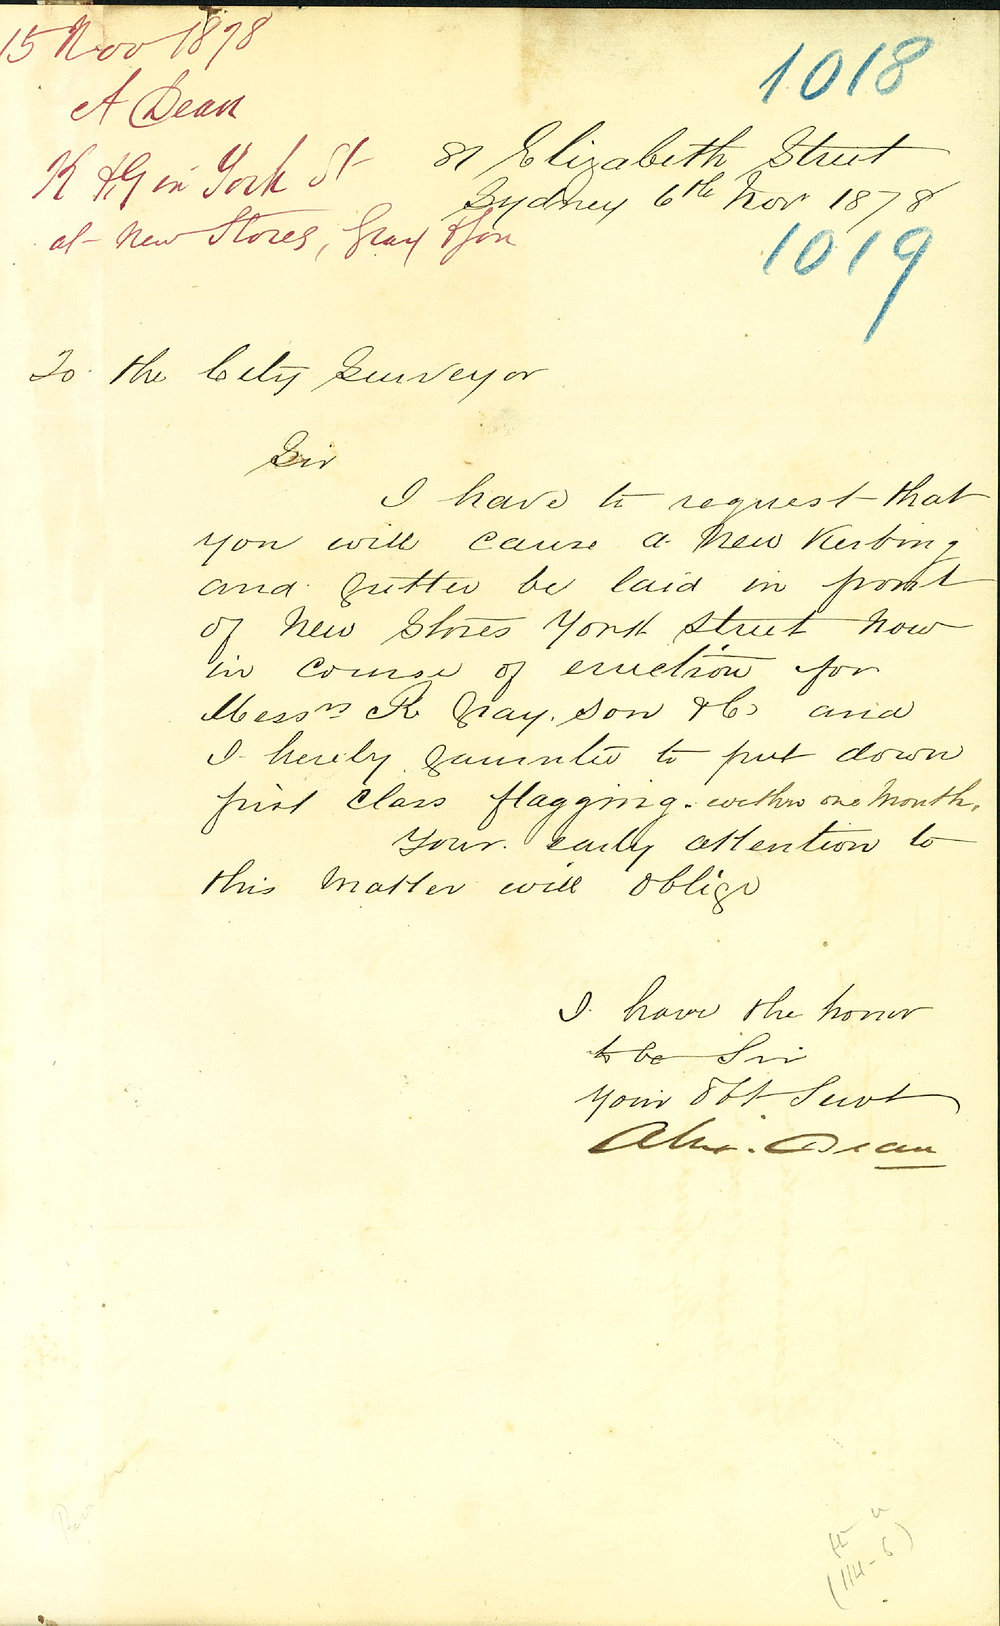 15 Nov 1878
A Dean
K & G in York St
at New Stores, Gray & Son
1018
81 Elizabeth Street
Sydney 6th Nov 1878
1019
To the City Surveyor
Sir
I have to request that
you will cause a New Kerbing
and gutter be laid in front
of New Stores York Street Now
in course of erection for
Messrs R Gray, Son & Co and
I hereby guarantee to put down
first Class flagging. within one Month.
Your early attention to
this Matter will Oblige
I have the honor
to be Sir
your Obt Servt
Alex. Dean
(114-6)